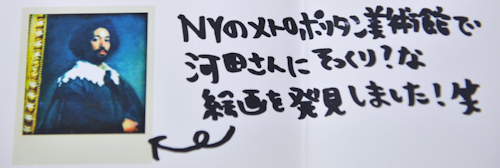 NYのメトロポリタン美術館で
河田さんにそっくり?な
絵画を発見しました!笑